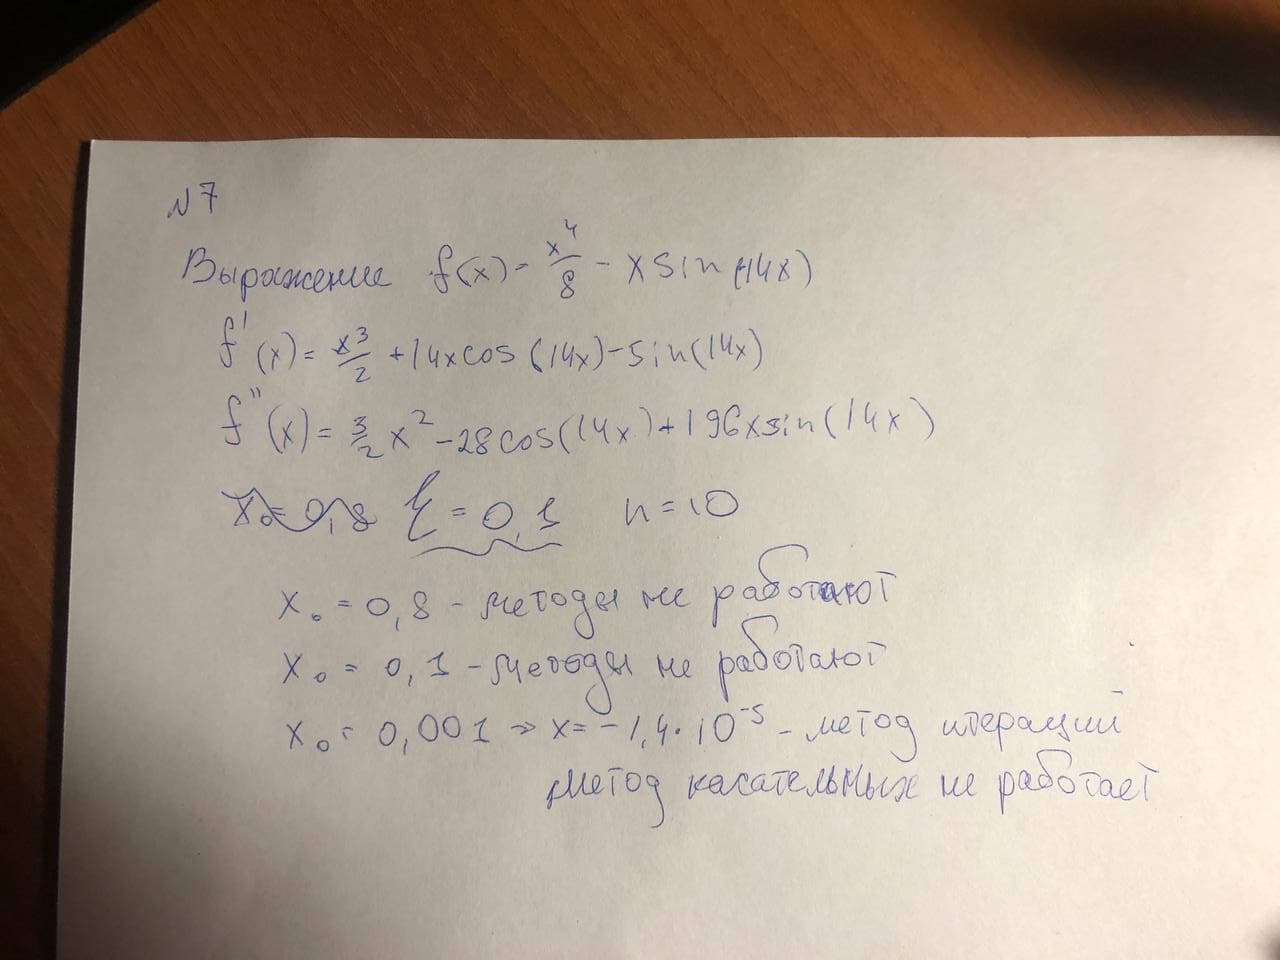 N7
Выражение f(x) = x⁴/8 - x sin(14x)
f'(x) = x³/2 + 14x cos(14x) - sin(14x)
f''(x) = 3/2 x² - 28cos(14x) + 196x sin(14x)
x₀ = 0,8 ξ = 0,1 n = 10
x₀ = 0,8 - методы не работают
x₀ = 0,1 - методы не работают
x₀ = 0,001 => x = -1,4·10⁻⁵ - метод итераций
метод касательных не работает